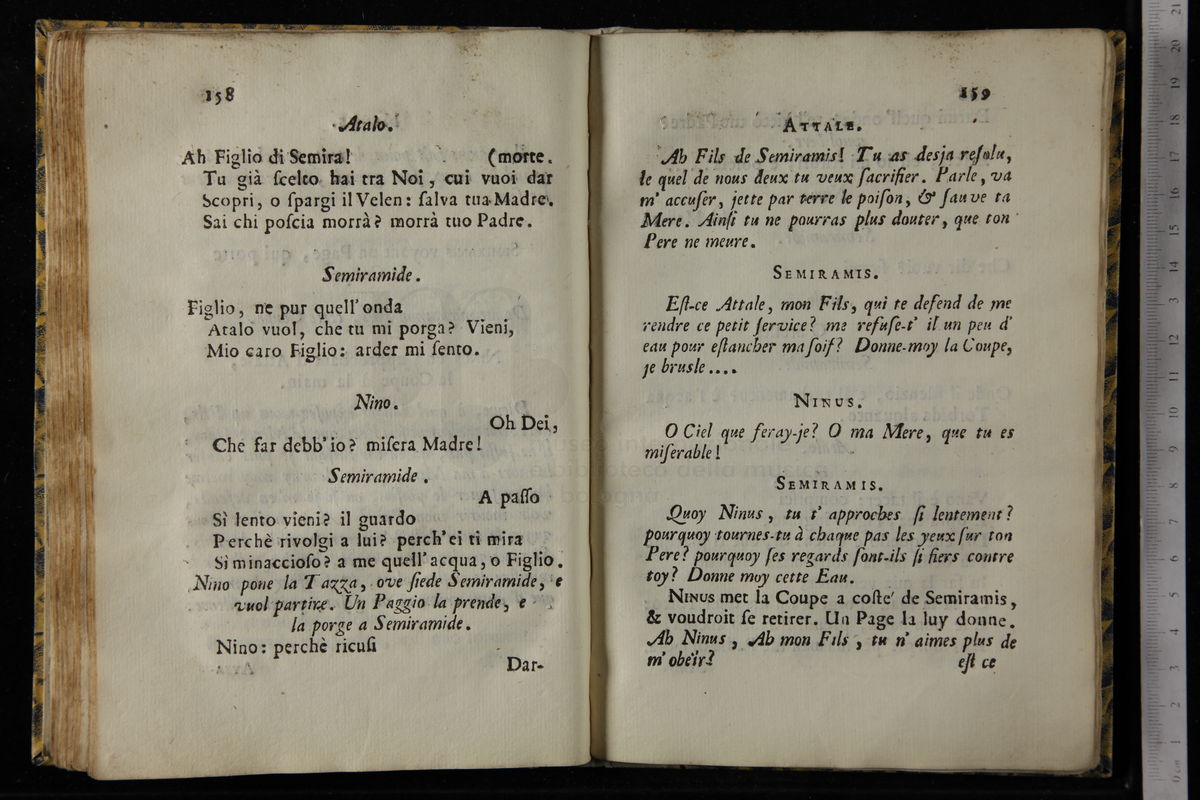 158
Atalo.
Ah Figlio di Semira! (morte.
Tu già ſcelto hai tra Noi, cui vuoi dar
Scopri, o ſpargi il Velen: ſalva tua Madre.
Sai chi poſcia morrà? morrà tuo Padre.
Semiramide.
Figlio, ne pur quell' onda
Atalo vuol, che tu mi porga? Vieni,
Mio caro Figlio: arder mi ſento.
Nino.
Oh Dei,
Che far debb' io? miſera Madre!
Semiramide.
A paſſo
Sì lento vieni? il guardo
Perchè rivolgi a lui? perch' ei ti mira
Sì minaccioſo? a me quell' acqua, o Figlio.
Nino pone la Tazza, ove ſiede Semiramide, e
vuol partire. Un Paggio la prende, e
la porge a Semiramide.
Nino: perchè ricuſi
Dar-
159
ATTALE.
Ah Fils de Semiramis! Tu as desja reſolu,
le quel de nous deux tu veux ſacrifier. Parle, va
m' accuſer, jette par terre le poiſon, & ſauve ta
Mere. Ainſi tu ne pourras plus douter, que ton
Pere ne meure.
SEMIRAMIS.
Eſt-ce Attale, mon Fils, qui te defend de me
rendre ce petit ſervice? me refuſe-t' il un peu d'
eau pour eſtancher ma ſoif? Donne-moy la Coupe,
je brusle....
NINUS.
O Ciel que feray-je? O ma Mere, que tu es
miſerable!
SEMIRAMIS.
Quoy Ninus, tu t' approches ſi lentement?
pourquoy tournes-tu à chaque pas les yeux ſur ton
Pere? pourquoy ſes regards ſont-ils ſi fiers contre
toy? Donne moy cette Eau.
NINUS met la Coupe a coſte' de Semiramis,
& voudroit ſe retirer. Un Page la luy donne.
Ah Ninus, Ah mon Fils, tu n' aimes plus de
m' obeïr?
eſt ce